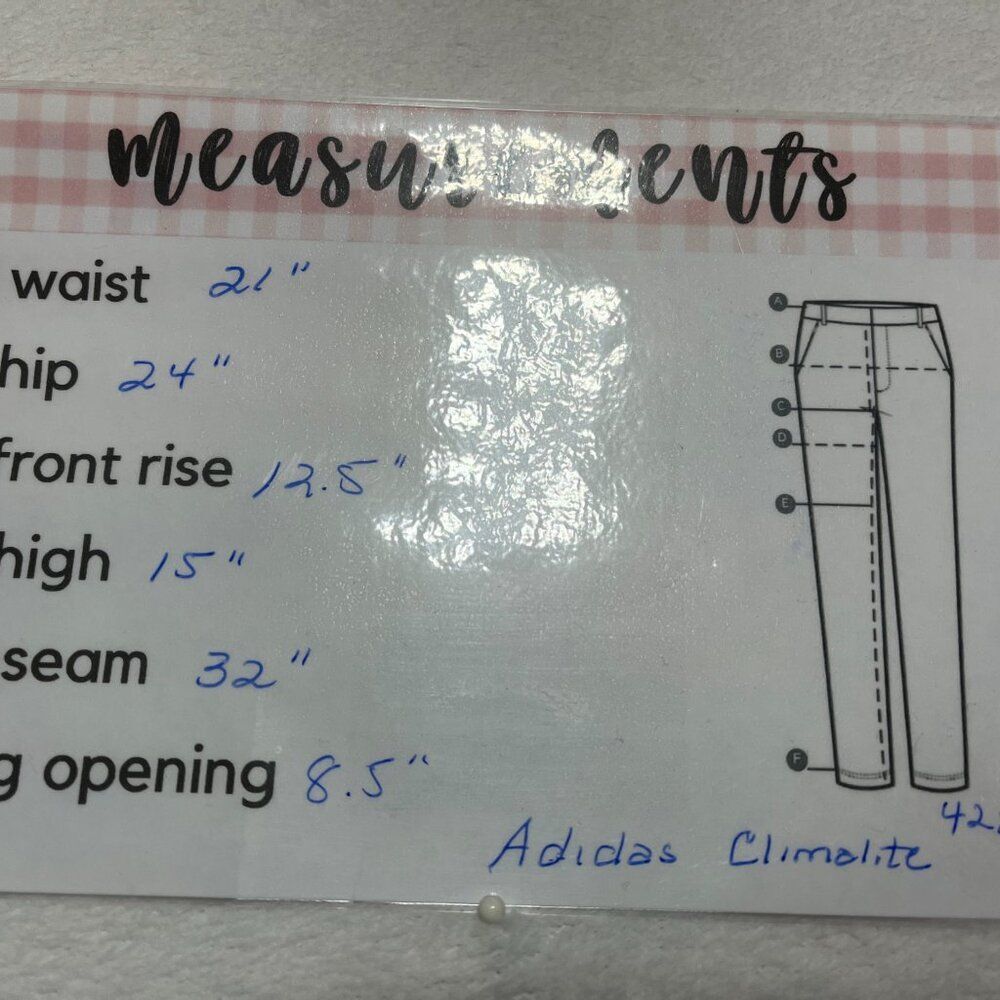 measurements
waist 21"
hip 24"
front rise 12.5"
high 15"
seam 32"
g opening 8.5"
A
B
C
D
E
F
42.
Adidas Climalite